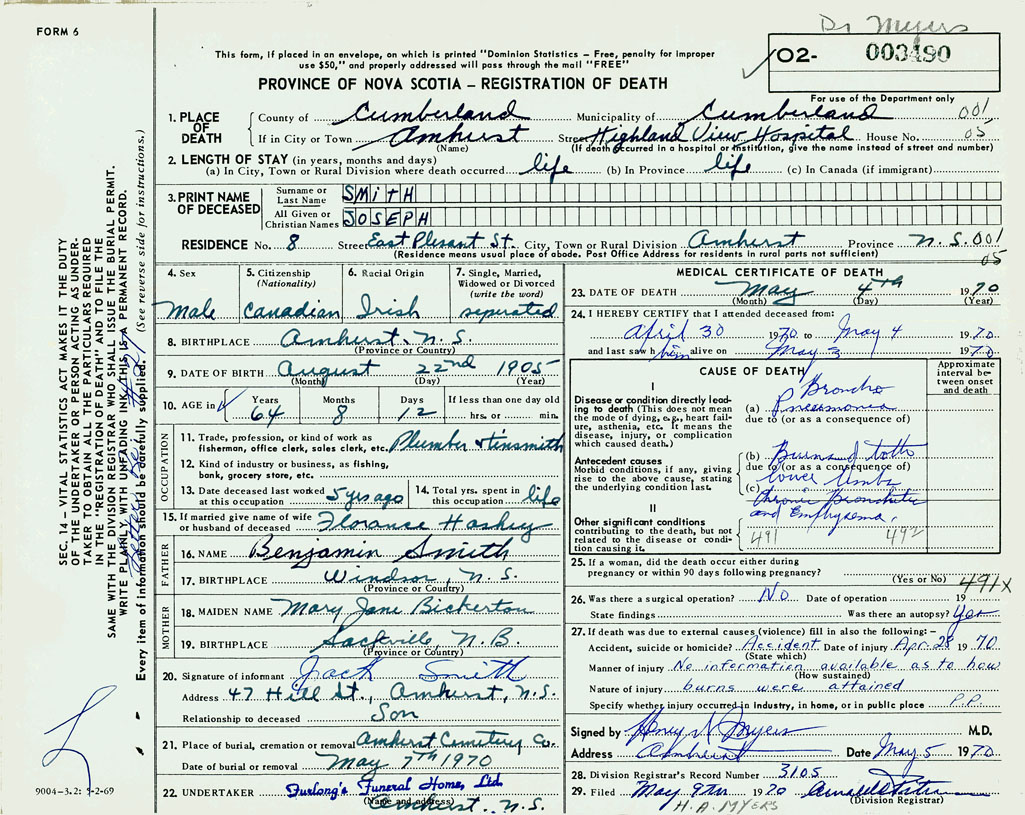 FORM 6
Dr Myers
This form, if placed in an envelope, on which is printed "Dominion Statistics – Free, penalty for improper
use $50," and properly addressed will pass through the mail "FREE"
O2- 003490
PROVINCE OF NOVA SCOTIA – REGISTRATION OF DEATH
For use of the Department only
1. PLACE OF DEATH
County of Cumberland Municipality of Cumberland 001
If in City or Town Amhurst Street Highland View Hospital House No. 05
(Name) (If death occurred in a hospital or institution, give the name instead of street and number)
2. LENGTH OF STAY (in years, months and days)
(a) In City, Town or Rural Division where death occurred life (b) In Province life (c) In Canada (if immigrant)
3. PRINT NAME OF DECEASED
Surname or Last Name SMITH
All Given or Christian Names JOSEPH
RESIDENCE No. 8 Street East Plesant St. City, Town or Rural Division Amherst Province N.S. 001
(Residence means usual place of abode. Post Office Address for residents in rural parts not sufficient) 05
4. Sex
Male
5. Citizenship
(Nationality)
Canadian
6. Racial Origin
Irish
7. Single, Married,
Widowed or Divorced
(write the word)
seperated
8. BIRTHPLACE Amherst. N.S.
(Province or Country)
9. DATE OF BIRTH August 22nd 1905
(Month) (Day) (Year)
10. AGE in Years Months Days If less than one day old
64 8 12 hrs. or min.
OCCUPATION
11. Trade, profession, or kind of work as
fisherman, office clerk, sales clerk, etc. Plumber & tinsmith
12. Kind of industry or business, as fishing,
bank, grocery store, etc.
13. Date deceased last worked
at this occupation 5 yrs ago
14. Total yrs. spent in
this occupation life
15. If married give name of wife
or husband of deceased Florance
FATHER
16. NAME Benjamin Smith
17. BIRTHPLACE Windsor, N.S.
(Province or Country)
MOTHER
18. MAIDEN NAME Mary Jane Bickerton
19. BIRTHPLACE Sackville N.B
(Province or Country)
20. Signature of informant Jack Smith
Address 47 Hill St., Amherst, N.S.
Relationship to deceased Son
21. Place of burial, cremation or removal Amherst Cemetery Co.
Date of burial or removal May 7th 1970
22. UNDERTAKER Furlong's Funeral Home, Ltd.
(Name and address)
Amherst, N.S.
MEDICAL CERTIFICATE OF DEATH
23. DATE OF DEATH May 4th 1970
(Month) (Day) (Year)
24. I HEREBY CERTIFY that I attended deceased from:
April 30 1970 to May 4 1970
and last saw him alive on May 3 1970
CAUSE OF DEATH
Approximate
interval be-
tween onset
and death
I
Disease or condition directly lead-
ing to death (This does not mean
the mode of dying, e.g., heart fail-
ure, asthenia, etc. It means the
disease, injury, or complication
which caused death.)
Broncho
(a) Pneumonia
due to (or as a consequence of)
Antecedent causes
Morbid conditions, if any, giving
rise to the above cause, stating
the underlying condition last.
(b) Burns of both
due to (or as a consequence of)
lower limbs
(c)
II
Other significant conditions
contributing to the death, but not
related to the disease or condi-
tion causing it.
Chronic Bronchitis
and Emphysema,
491 492
25. If a woman, did the death occur either during
pregnancy or within 90 days following pregnancy?
(Yes or No) 491X
26. Was there a surgical operation? No Date of operation 19
State findings Was there an autopsy? Yes
27. If death was due to external causes (violence) fill in also the following: –
Accident, suicide or homicide? Accident Date of injury Apr-28 1970
(State which)
Manner of injury No information available as to how
(How sustained)
Nature of injury burns were attained
Specify whether injury occurred in industry, in home, or in public place P.P.
Signed by Henry A Myers M.D.
Address Amherst Date May 5 1970
28. Division Registrar's Record Number 3105
29. Filed May 9th 1970
(Division Registrar)
H.A. MYERS
SEC. 14 – VITAL STATISTICS ACT MAKES IT THE DUTY
OF THE UNDERTAKER OR PERSON ACTING AS UNDER-
TAKER TO OBTAIN ALL THE PARTICULARS REQUIRED
IN THE "REGISTRATION OF DEATH" AND TO FILE THE
SAME WITH THE DIVISION REGISTRAR WHO SHALL ISSUE THE BURIAL PERMIT.
WRITE PLAINLY WITH UNFADING INK, THIS IS A PERMANENT RECORD.
Every item of information should be carefully supplied. (See reverse side for instructions.)
9004-3.2: 5-2-69